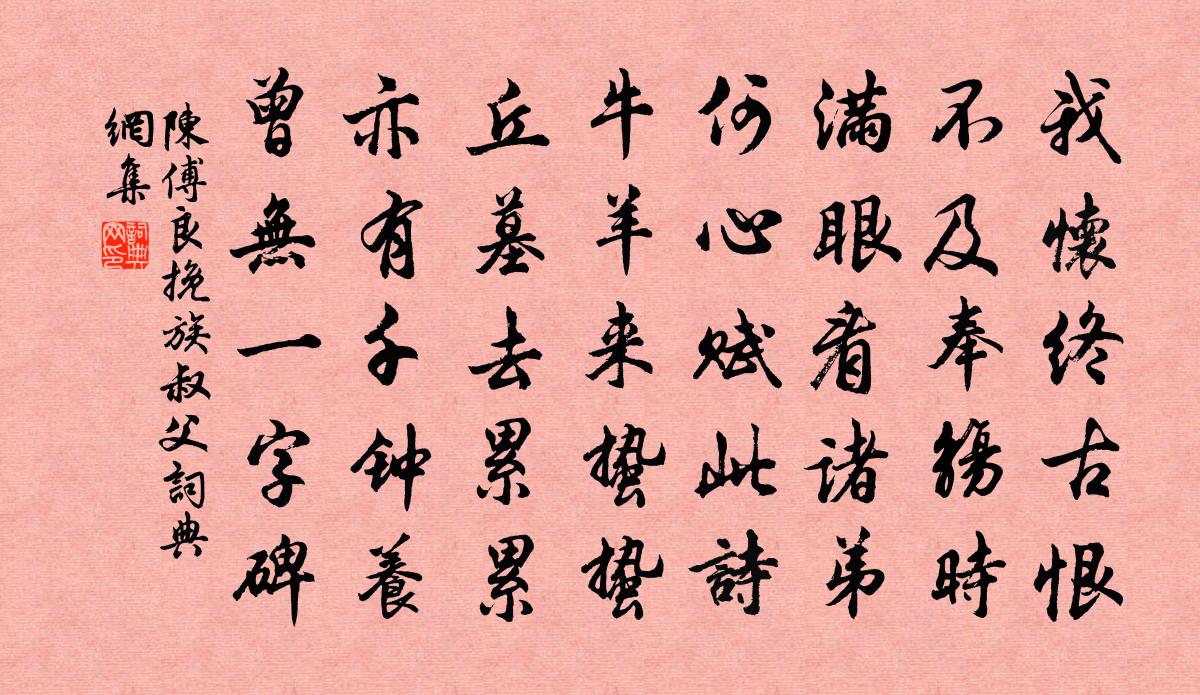 我懷终古恨
不及奉觴時
满眼看诸弟
何心赋此詩
牛羊来蛰蛰
丘墓去累累
亦有千钟養
曾無一字碑
陳傅良挽族叔父詞典
網集
詞典網印